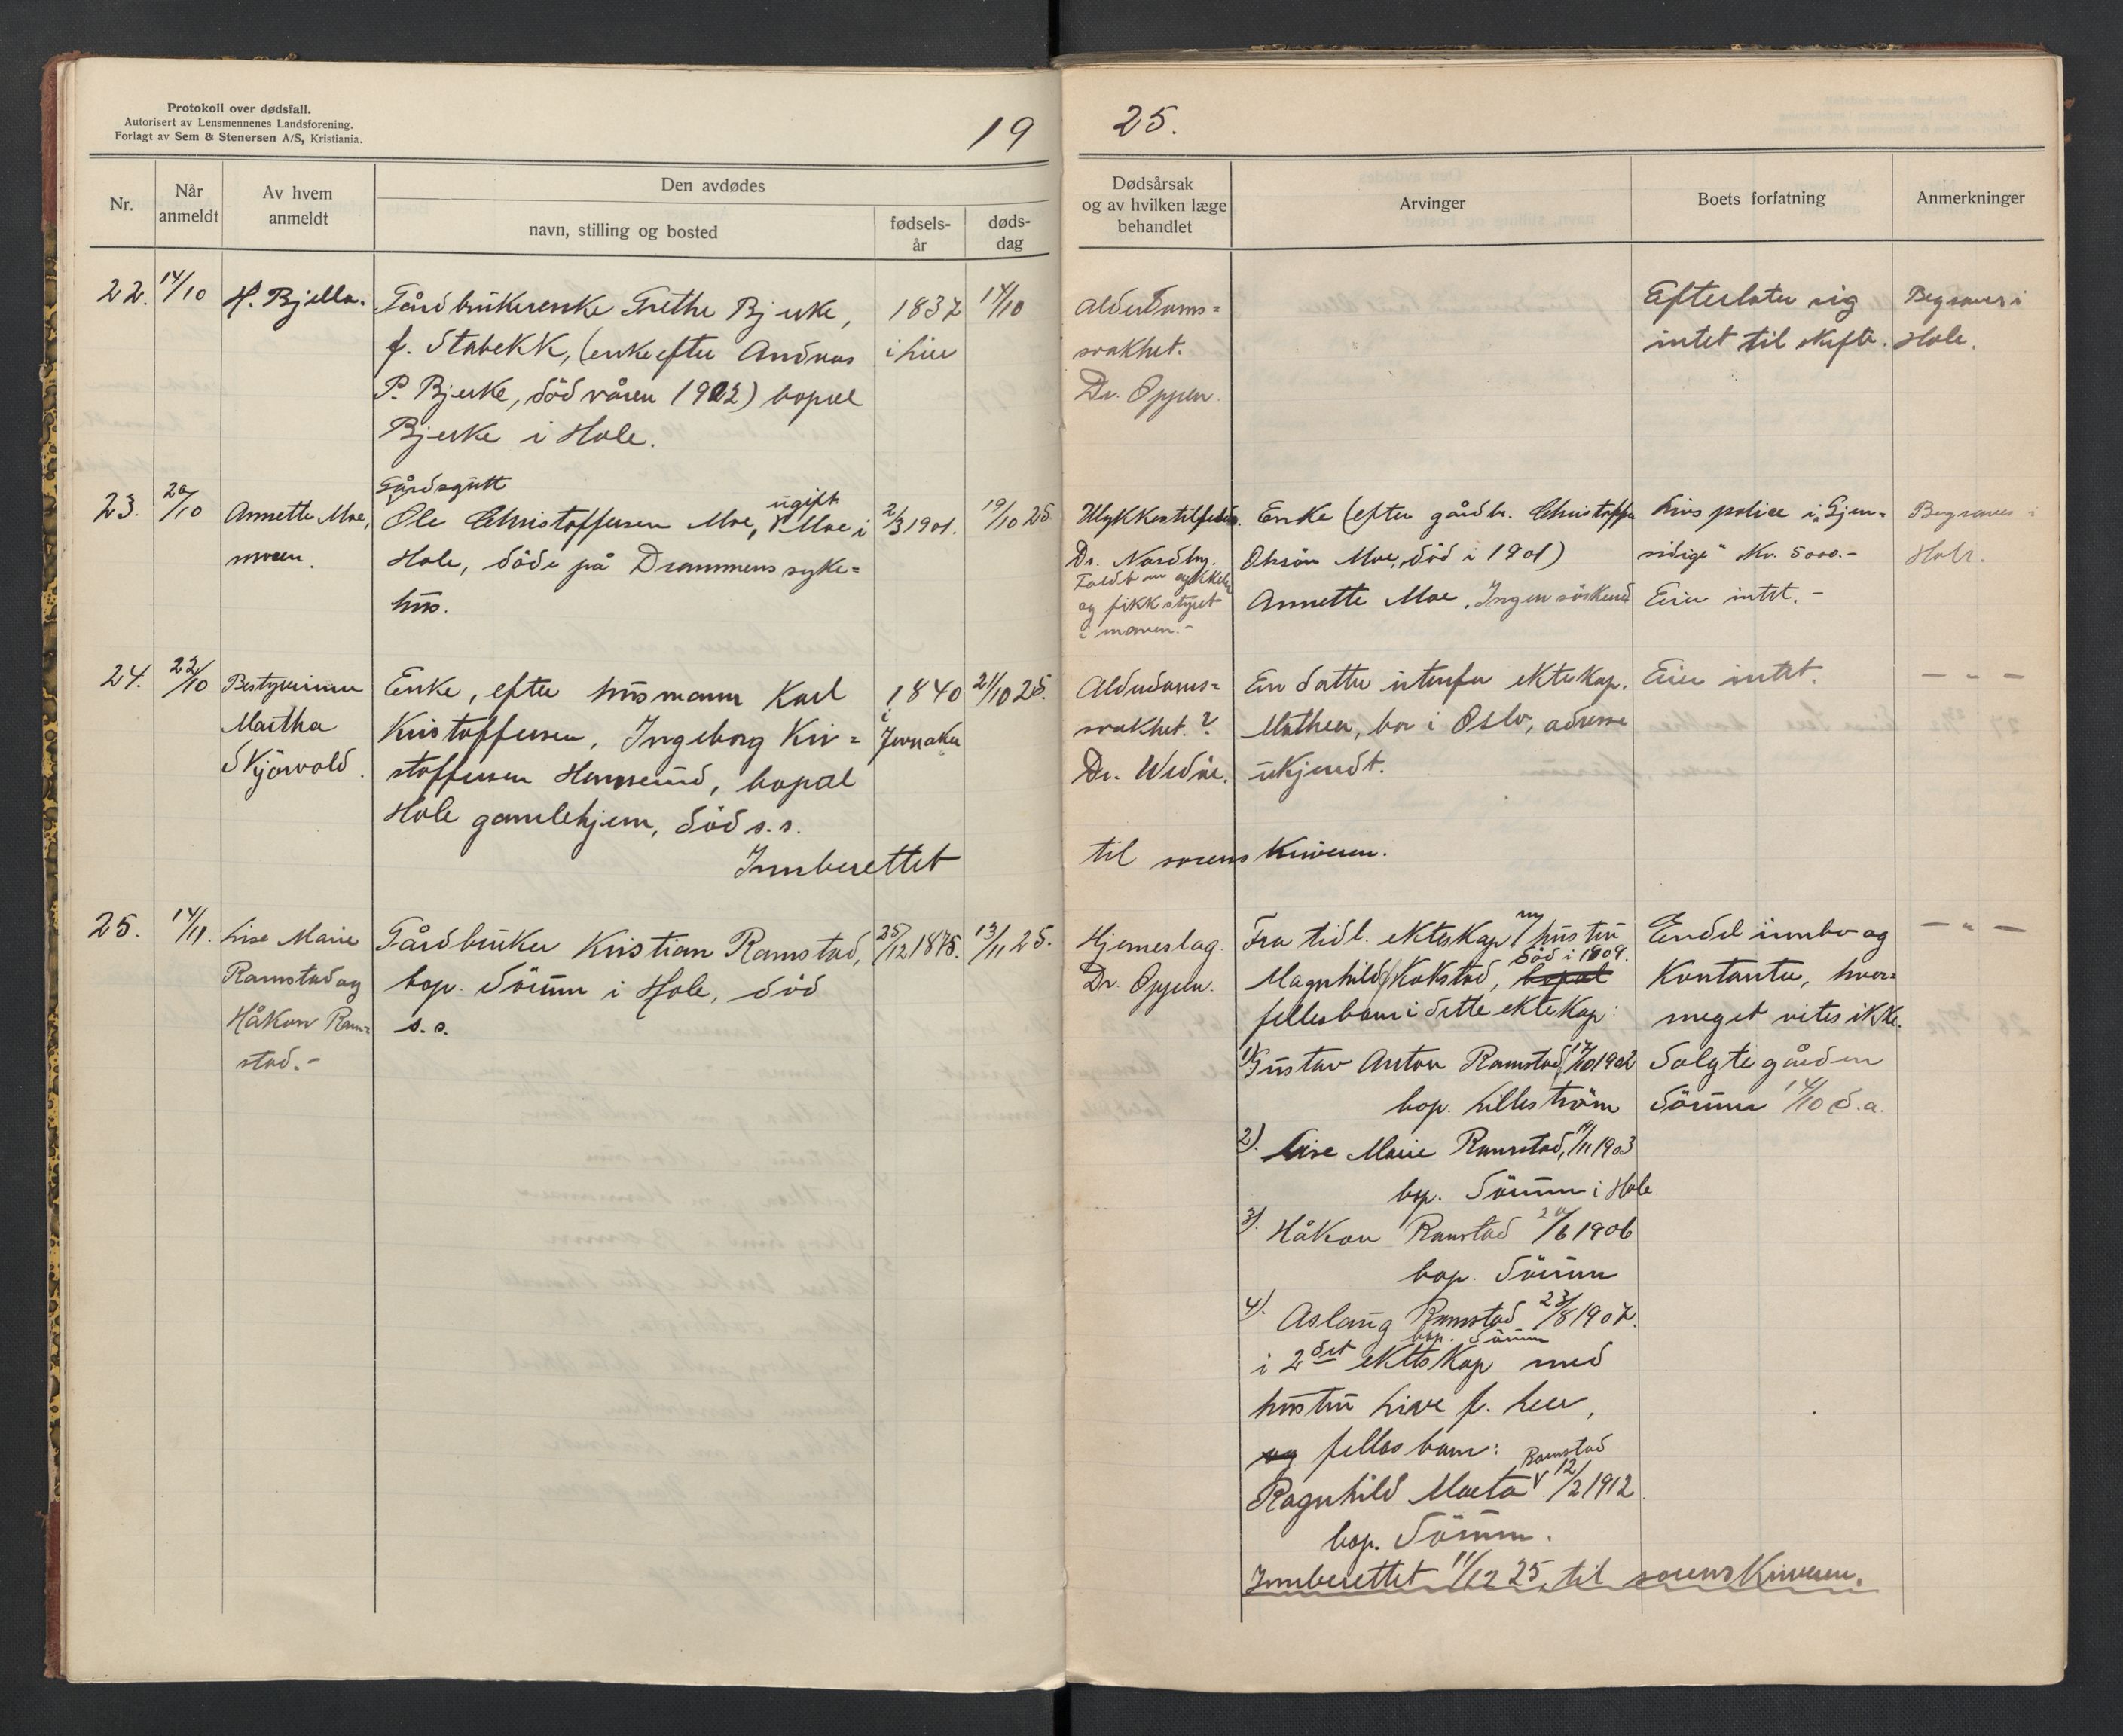 Protokoll over dødsfall.
Autorisert av Lensmennenes Landsforening.
Forlagt av Sem & Stenersen A/S, Kristiania.
19
Nr.
Når anmeldt
Av hvem anmeldt
Den avdødes
navn, stilling og bosted
fødselsår
dødsdag
22. 14/10 H. Bjella. Gårdbrukerenke Grethe Bjerke, 1837 14/10
f. Stabekk, (enke efter Andreas i Lier
P. Bjerke, död våren 1912) bopæl
Bjerke i Hole.
Gårdsgutt
23. 20/10 Annette Moe, Ole Christoffersen Moe, ugift Moe i 2/3 1901. 19/10 25
moren. Hole, döde på Drammens syke=
hus.
24. 22/10 Bestyrerinne Enke, efter husmann Karl 1840 21/10 25.
Martha Kristoffersen, Ingeborg Kri= i Jevnaker
Skjörvold. stoffersen Hensrud, bopæl
Hole gamlehjem, död s.s.
Innberettet
25. 14/11. Lise Marie Gårdbruker Kristian Ramstad, 25/12 1875. 13/11 25.
Ramstad og bop. Sörum i Hole, död
Håkon Ram= s.s.
stad.-
25.
Dødsårsak
og av hvilken læge
behandlet
Arvinger
Boets forfatning
Anmerkninger
Alderdoms= Efterlater sig Begraves i
svakhet. intet til skifte. Hole.
Dr. Oppen.
Ulykkestilfelle. Enke (efter gårdbr. Christoffer Livspolice i "Gjen= Begraves i
Dr. Nordby. Olsön Moe, död i 1901) sidige" kr. 5000.- Hole.
Faldt av cykkelen
og fikk styret Annette Moe. Ingen söskend Eier intet.-
i maven.-
Alderdoms= En datter utenfor ekteskap. Eier intet. - " -
svakhet.? Mathea, bor i Oslo, adresse
Dr. Wedöe. ukjendt.
til sorenskriveren.
Hjerneslag. Fra tidl. ekteskap m/ hustru Endel innbo og - " -
Dr. Oppen. Magnhild f. Kokstad, bopæl död i 1909. Kontanter, hvor=
fellesbarn i dette ekteskap: meget vites ikke.
1) Gustav Anton Ramstad, 17/10 1902 Solgte gården
bop. Lilleström Sörum 14/10 d.a.
2). Lise Marie Ramstad, 19/11 1903
bop. Sörum i Hole
3). Håkon Ramstad 20/6 1906
bop. Sörum
4). Aslaug Ramstad 23/8 1907.
bop. Sörum
i 2det ekteskap med
hustru Live f. Leer,
og felles barn:
Ragnhild Marta Ramstad 12/2 1912
bop. Sörum.
Innberettet 11/12 25 til sorenskriveren.